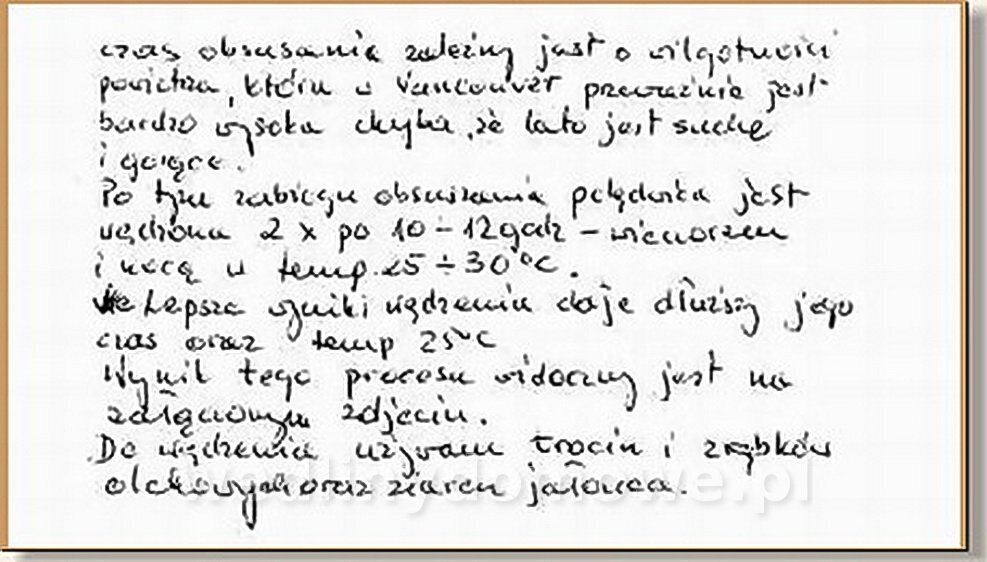 czas obsuszania zależny jest o wilgotności
powietrza, która w Vancouver przeważnie jest
bardzo wysoka chyba, że lato jest suche
i gorące.
Po tym zabiegu obsuszania polędwica jest
wędzona 2 x po 10 ÷ 12 godz – wieczorem
i nocą w temp. 25 ÷ 30°C.
Lepsze wyniki wędzenia daje dłuższy jego
czas oraz temp 25°C
Wynik tego procesu widoczny jest na
załączonym zdjęciu.
Do wędzenia używam trocin i zrębków
olchowych oraz ziaren jałowca.
wedlinydomowe.pl